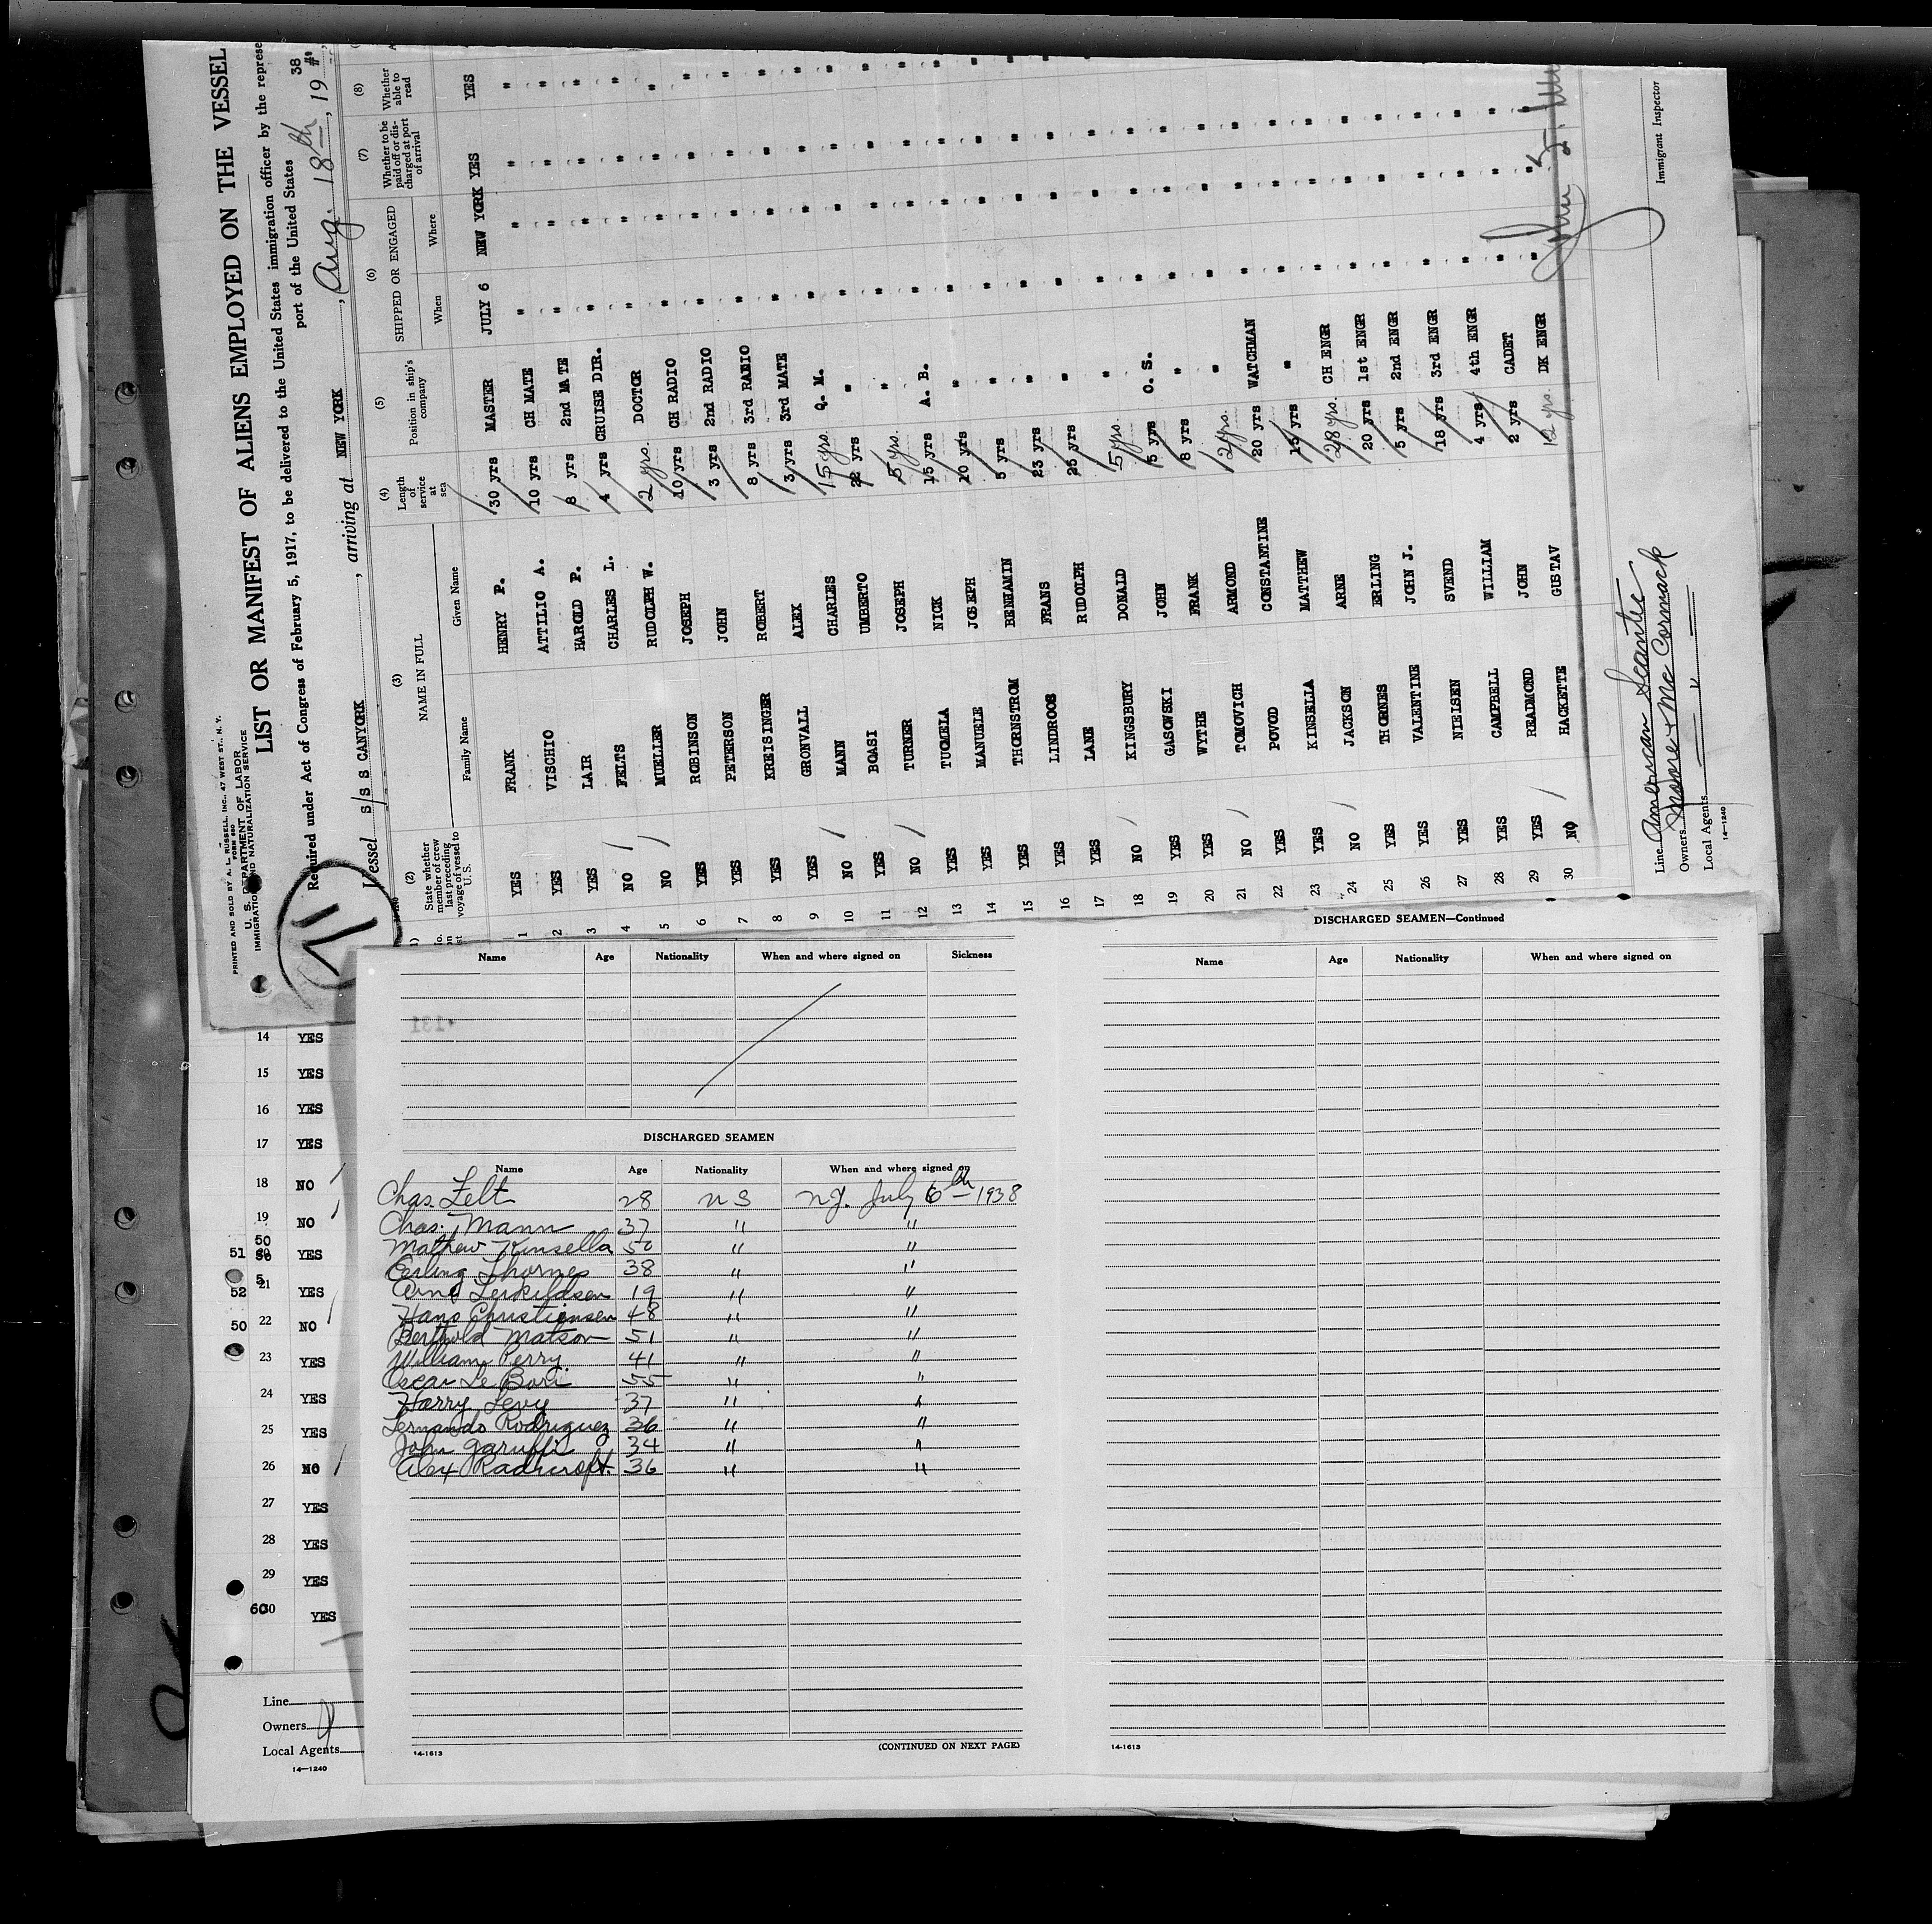 PRINTED AND SOLD BY A. L. RUSSELL, INC., 47 WEST ST., N. Y.
FORM 680
U. S. DEPARTMENT OF LABOR
IMMIGRATION AND NATURALIZATION SERVICE
LIST OR MANIFEST OF ALIENS EMPLOYED ON THE VESSEL
Required under Act of Congress of February 5, 1917, to be delivered to the United States immigration officer by the represe
port of the United States
Vessel s/s S CANYORK, arriving at NEW YORK, Aug. 18th, 19 38
(2) (3) (4) (5) (6) (7) (8)
State whether member of crew last preceding voyage of vessel to U. S.
NAME IN FULL
Family Name Given Name
Length of service at sea
Position in ship's company
SHIPPED OR ENGAGED
When Where
Whether to be paid off or discharged at port of arrival
Whether able to read
1 YES FRANK HENRY P. 30 yrs MASTER JULY 6 NEW YORK YES YES
2 YES VISCHIO ATTILIO A. 10 yrs CH MATE " " " "
3 YES LAIR HAROLD P. 8 yrs 2nd MATE " " " "
4 NO FELTS CHARLES L. 4 yrs CRUISE DIR. " " " "
5 NO MUELLER RUDOLPH W. 2 yrs. DOCTOR " " " "
6 YES ROBINSON JOSEPH 10 yrs CH RADIO " " " "
7 YES PETERSON JOHN 3 yrs 2nd RADIO " " " "
8 YES KREISINGER ROBERT 8 yrs 3rd RANIO " " " "
9 YES GRONVALL ALEX 3 yrs 3rd MATE " " " "
10 NO MANN CHARLES 15 yrs. Q. M. " " " "
11 YES BOASI UMBERTO 22 yrs " " " " "
12 NO TURNER JOSEPH 5 yrs. " " " " "
13 YES TUCMELA NICK 15 yrs A. B. " " " "
14 YES MANUELE JOSEPH 10 yrs " " " " "
15 YES THORNSTROM BENHAMIN 5 yrs " " " " "
16 YES LINDROOS FRANS 23 yrs " " " " "
17 YES LANE RUDOLPH 25 yrs " " " " "
18 NO KINGSBURY DONALD 5 yrs. " " " "
19 YES GASOWSKI JOHN 5 yrs O. S. " " "
20 YES WYTHE FRANK 8 yrs " " " "
21 NO TOMOVICH ARMOND 2 yrs. " " " "
22 YES POVOD CONSTANTINE 20 yrs WATCHMAN " " "
23 YES KINSELLA MATTHEW 15 yrs " " " "
24 NO JACKSON ARNE 28 yrs. CH ENGR " " "
25 YES THORNES ERLING 20 yrs 1st ENGR " " "
26 YES VALENTINE JOHN J. 5 yrs 2nd ENGR " " "
27 YES NIELSEN SVEND 18 yrs 3rd ENGR " " "
28 YES CAMPBELL WILLIAM 4 yrs 4th ENGR " " "
29 YES READMOND JOHN 2 yrs CADET " " "
30 NO HACKETTE GUSTAV 12 yrs. DK ENGR " "
Line American Scantic
Owners Moore & Mc Cormack
Local Agents "
14-1240
Immigrant Inspector
14 YES
15 YES
16 YES
17 YES
18 NO
19 NO
50
51 YES
52 21 YES
50 22 NO
23 YES
24 YES
25 YES
26 NO
27 YES
28 YES
29 YES
60 30 YES
Line
Owners
Local Agents
14—1240
Name Age Nationality When and where signed on Sickness
131
DISCHARGED SEAMEN
Name Age Nationality When and where signed on
Chas. Felt 28 U S N.Y. July 6th 1938
Chas. Mann 37 " "
Mathew Kinsella 50 " "
Erling Thornes 38 " "
Arne Terkildsen 19 " "
Hans Christiansen 48 " "
Berthold Matson 51 " "
William Perry 41 " "
Oscar Le Bari 55 " "
Harry Levy 37 " "
Fernando Rodriguez 36 " "
John Garuffi 34 " "
Alex 36 " "
14-1613
(CONTINUED ON NEXT PAGE)
DISCHARGED SEAMEN—Continued
Name Age Nationality When and where signed on
14-1613